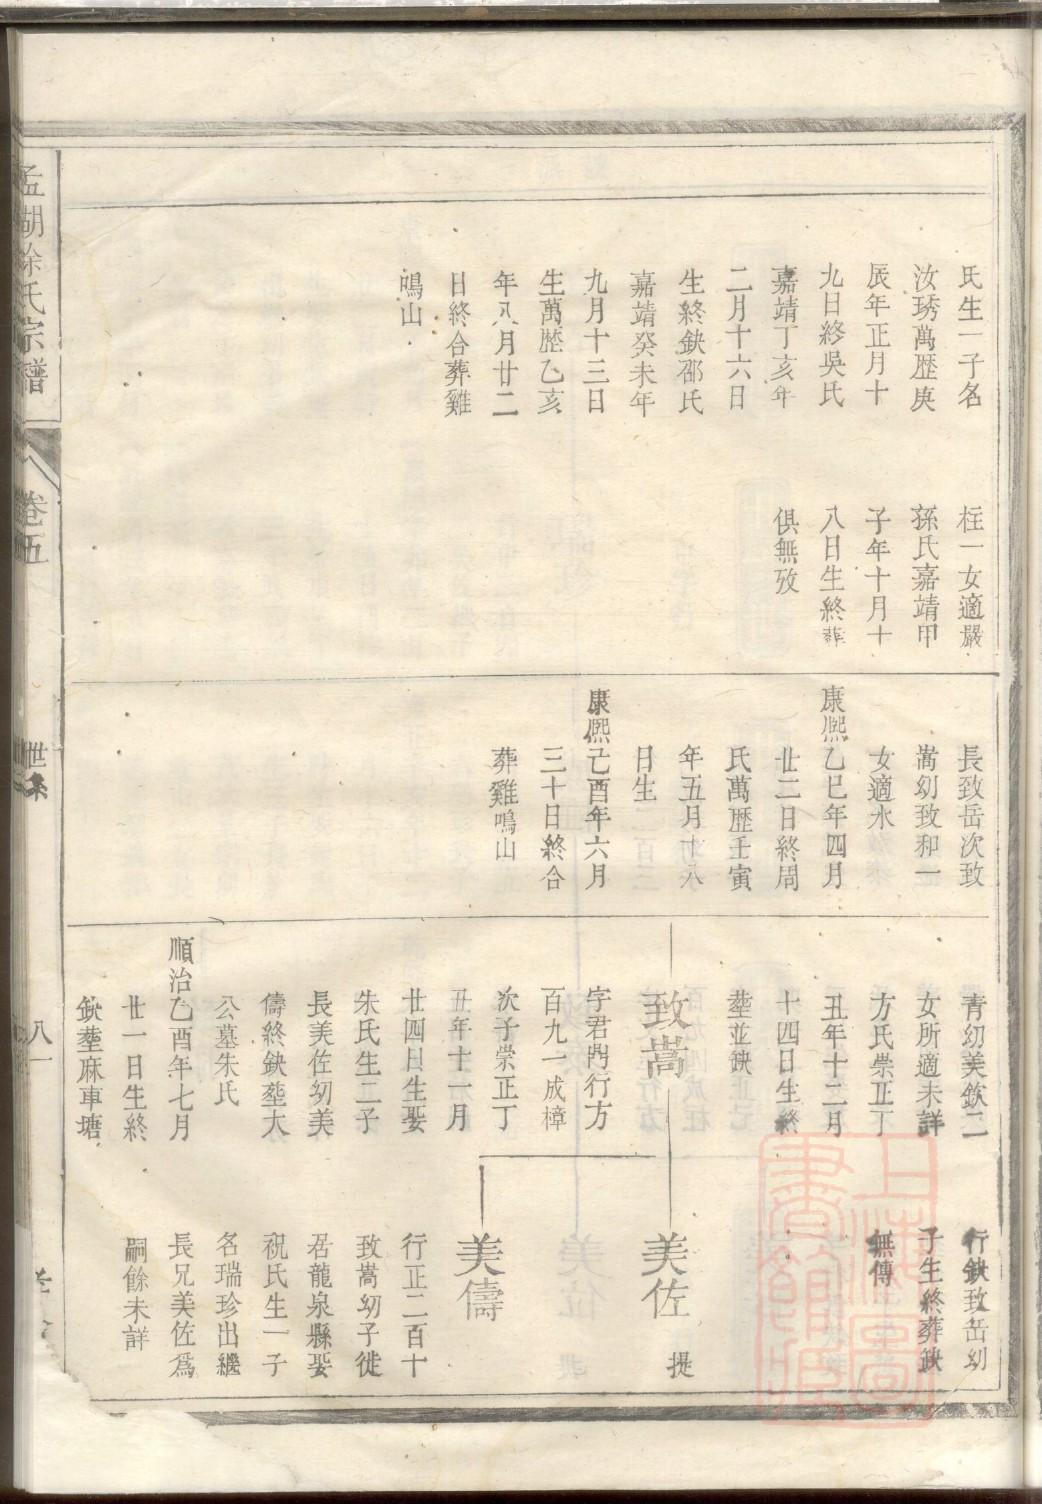 氏生一子名
汝琇萬歷庚
辰年正月十
九日終吳氏
嘉靖丁亥年
二月十六日
生終鈌邵氏
嘉靖癸未年
九月十三日
生萬歷乙亥
年八月廿二
日終合葬雞
鳴山
枉一女適嚴
孫氏嘉靖甲
子年十月十
八日生終葬
俱無攷
長致岳次致
蒿幼致和一
女適水
康熙乙巳年四月
廿二日終周
氏萬歷壬寅
年五月十八
日生
康熙己酉年六月
三十日終合
葬雞鳴山
青幼美欽二
女所適未詳
方氏崇正丁
丑年十二月
十四日生終
塟並鈌
致蒿
字君門行方
百九一成樟
次子崇正丁
丑年十一月
廿四日生娶
朱氏生二子
長美佐幼美
儔終鈌塟大
公墓朱氏
順治乙酉年七月
廿一日生終
鈌塟麻車塘
行鈌致岳幼
子生終葬鈌
無傳
美佐 提
美儔
行正二百十
致蒿幼子徙
居龍泉縣娶
祝氏生一子
名瑞珍出繼
長兄美佐爲
嗣餘未詳
孟湖徐氏宗譜
卷五
世系
八一
上海圖書館藏